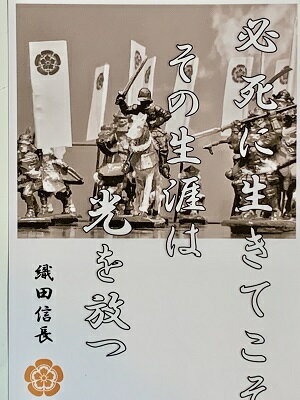 必死に生きてこそ
その生涯は
光を放つ
織田信長